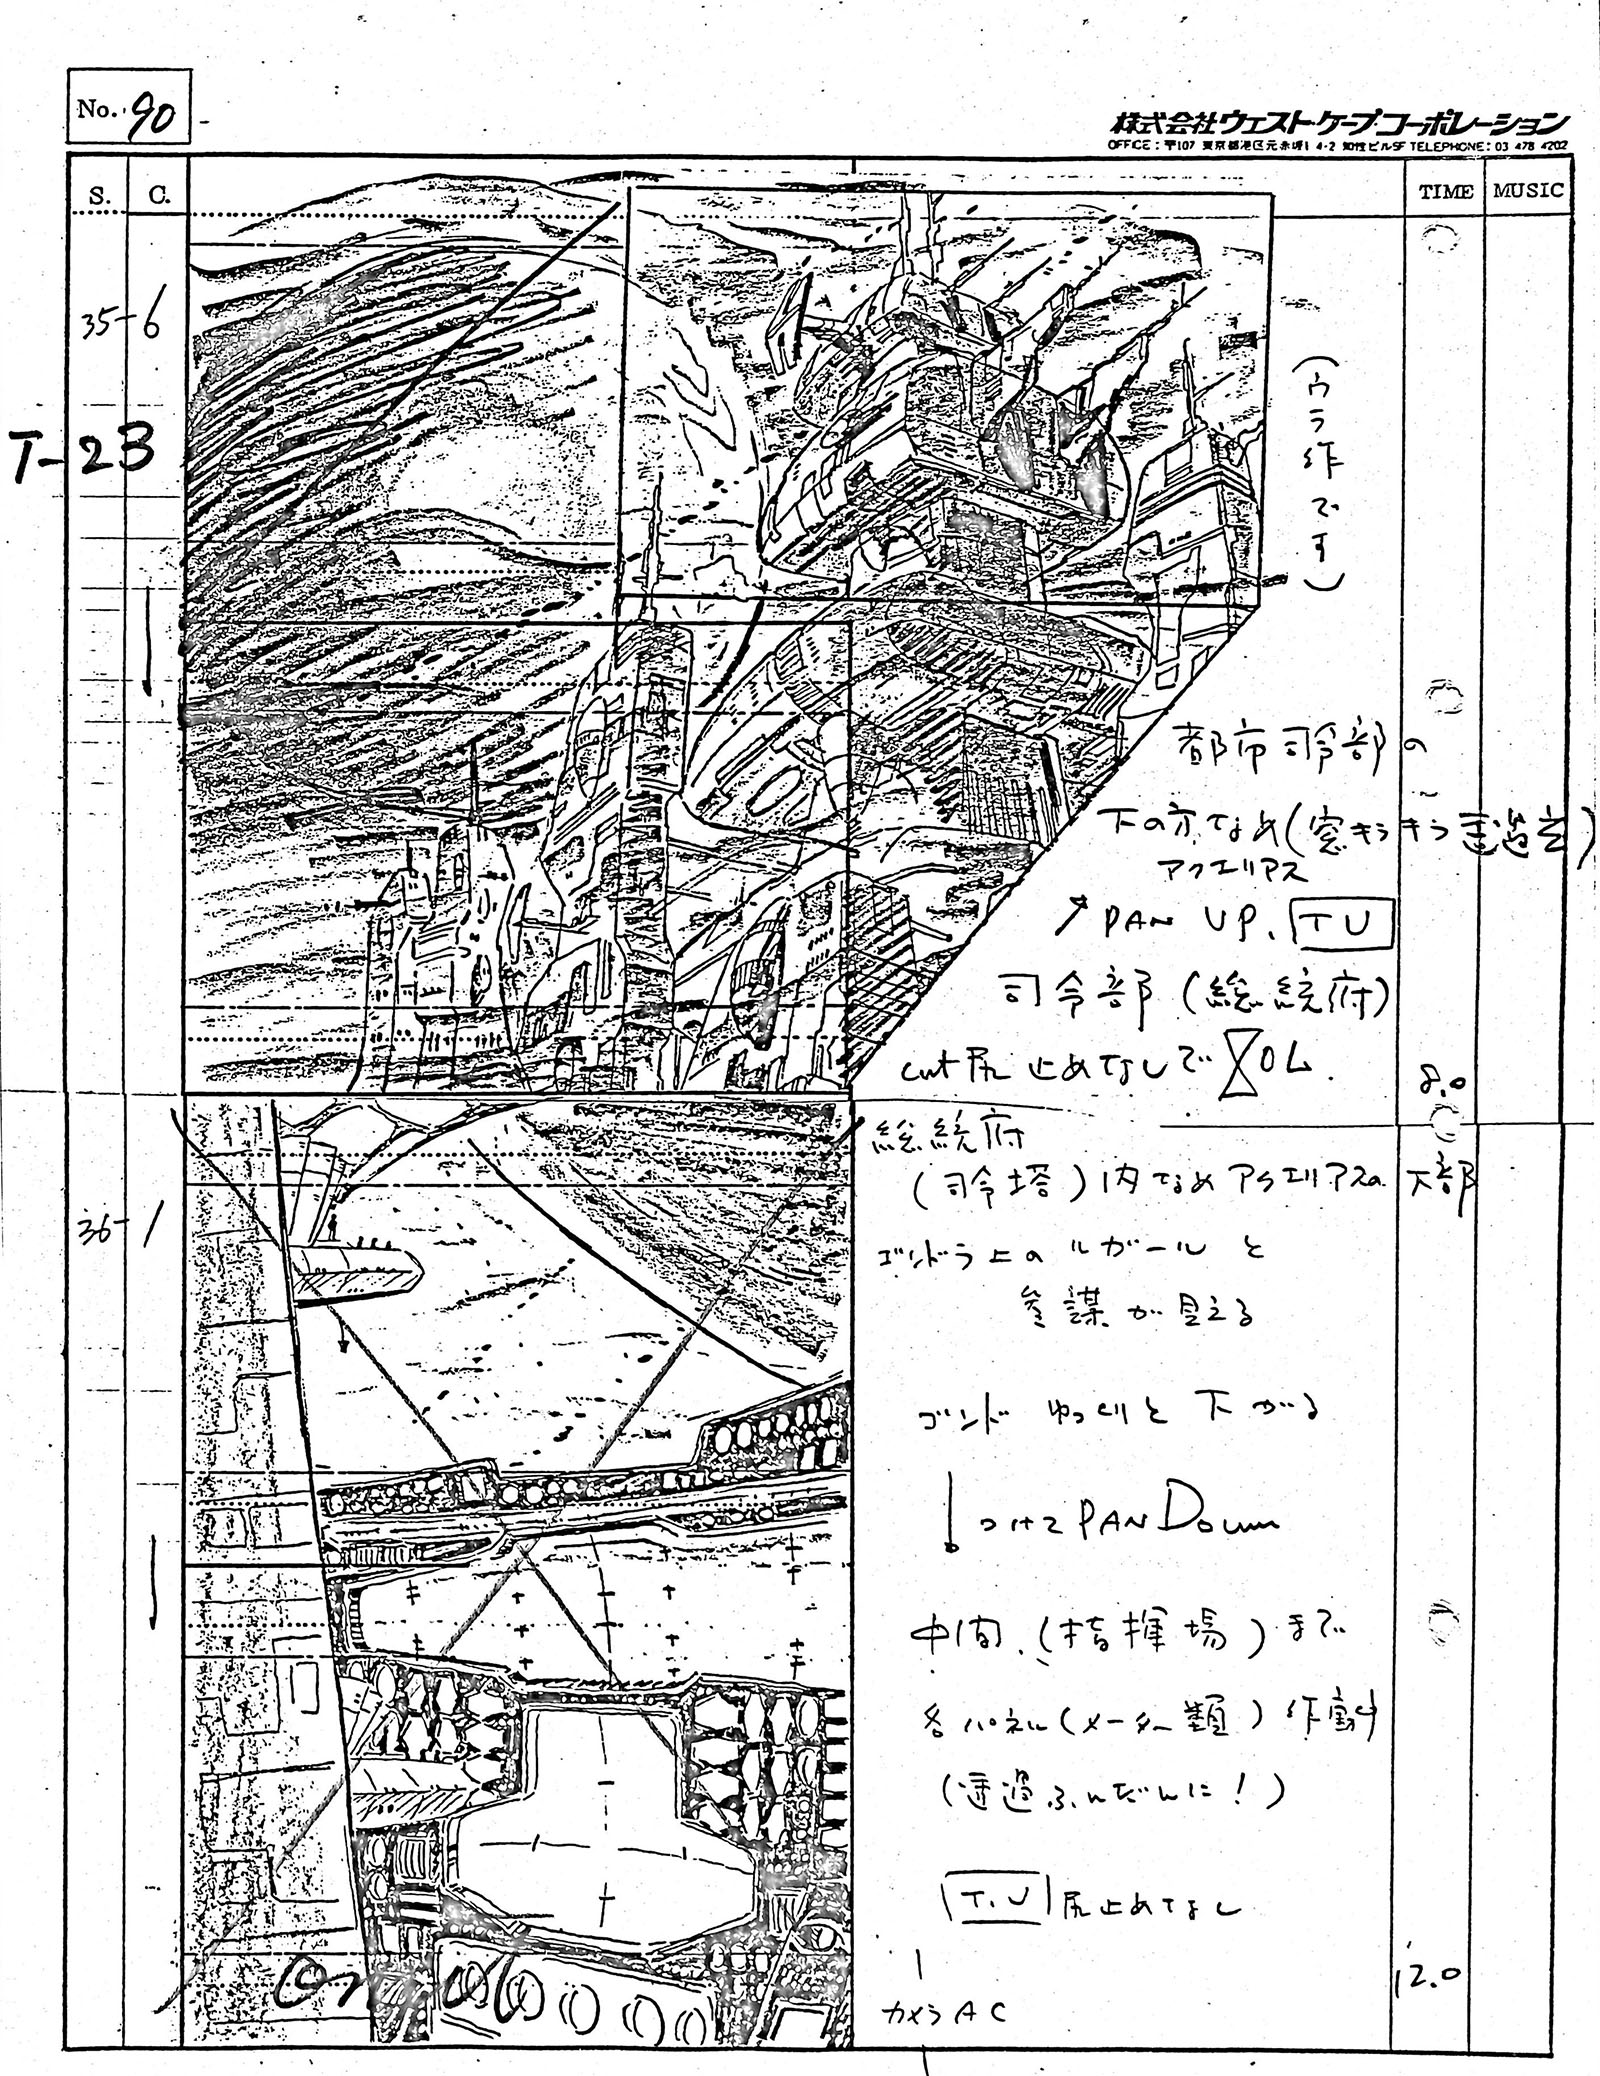 No. 90
株式会社ウェスト・ケープ・コーポレーション
OFFICE:〒107 東京都港区元赤坂1-4-2 知性ビル5F TELEPHONE:03 478 4202
S. C. TIME MUSIC
35-6
T-23
(ウラ作です)
都市司令部の
下の方なめ(窓キラキラ透過光)
アクエリアス
↗ PAN UP. TU
司令部(総統府)
cut尻止めなしで OL.
8.0
36-1
総統府
(司令塔)内なめアクエリアスの下部
ゴンドラ上のルガールと
参謀が見える
ゴンドラゆっくりと下がる
↓つけてPAN Down
中間(指揮場)まで
各パネル(メーター類)作動中
(透過ふんだんに!)
T.U 尻止めなし
12.0
カメラAC